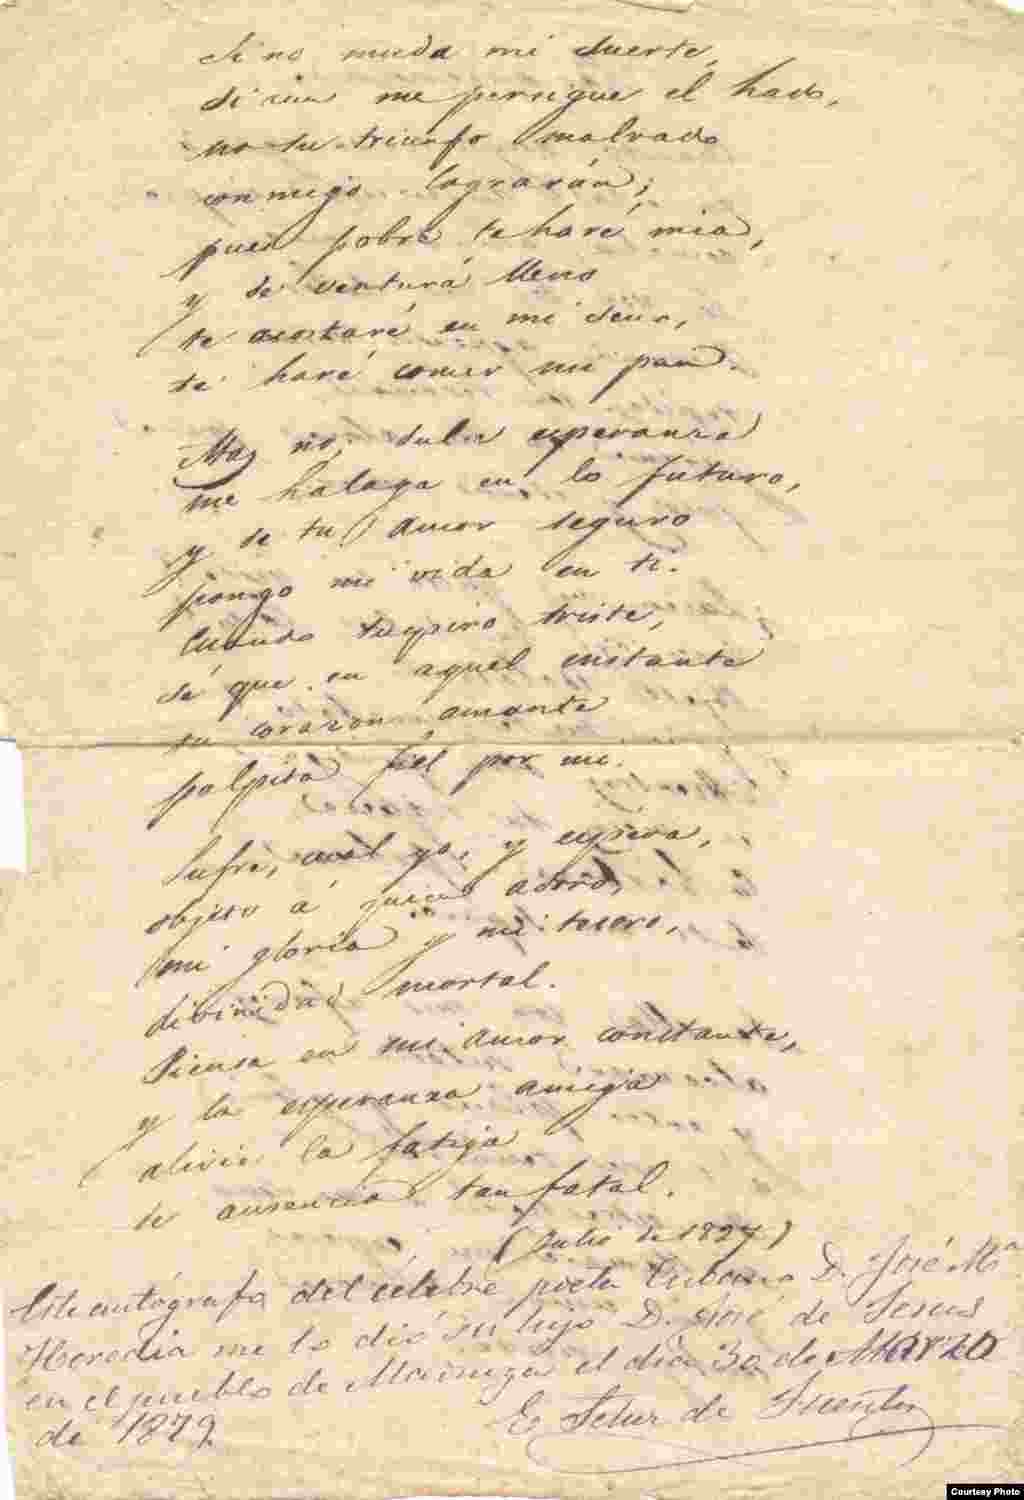 Si no muda mi suerte,
si aun me persigue el hado,
no su triunfo malvado
conmigo lograrán;
pues pobre te haré mia,
y de ventura lleno
te acostaré en mi seno,
te haré comer mi pan.
Mas no, dulce esperanza
me halaga en lo futuro,
y de tu amor seguro
pongo mi vida en ti.
Cuando suspiro triste,
sé que en aquel instante
tu corazon amante
palpita fiel por mi.
Sufre, cual yo, y espera,
objeto á quien adoro,
mi gloria y mi tesoro,
divinidad mortal.
Piensa en mi amor constante,
y la esperanza amiga
alivie la fatiga
de ausencia tan fatal.
(Julio de 1827)
Este autógrafo del célebre poeta Cubano D. José Mª
Heredia me lo dió su hijo D. José de Jesus
en el pueblo de el dia 30 de Marzo
de 1879
E de Fuentes
Courtesy Photo